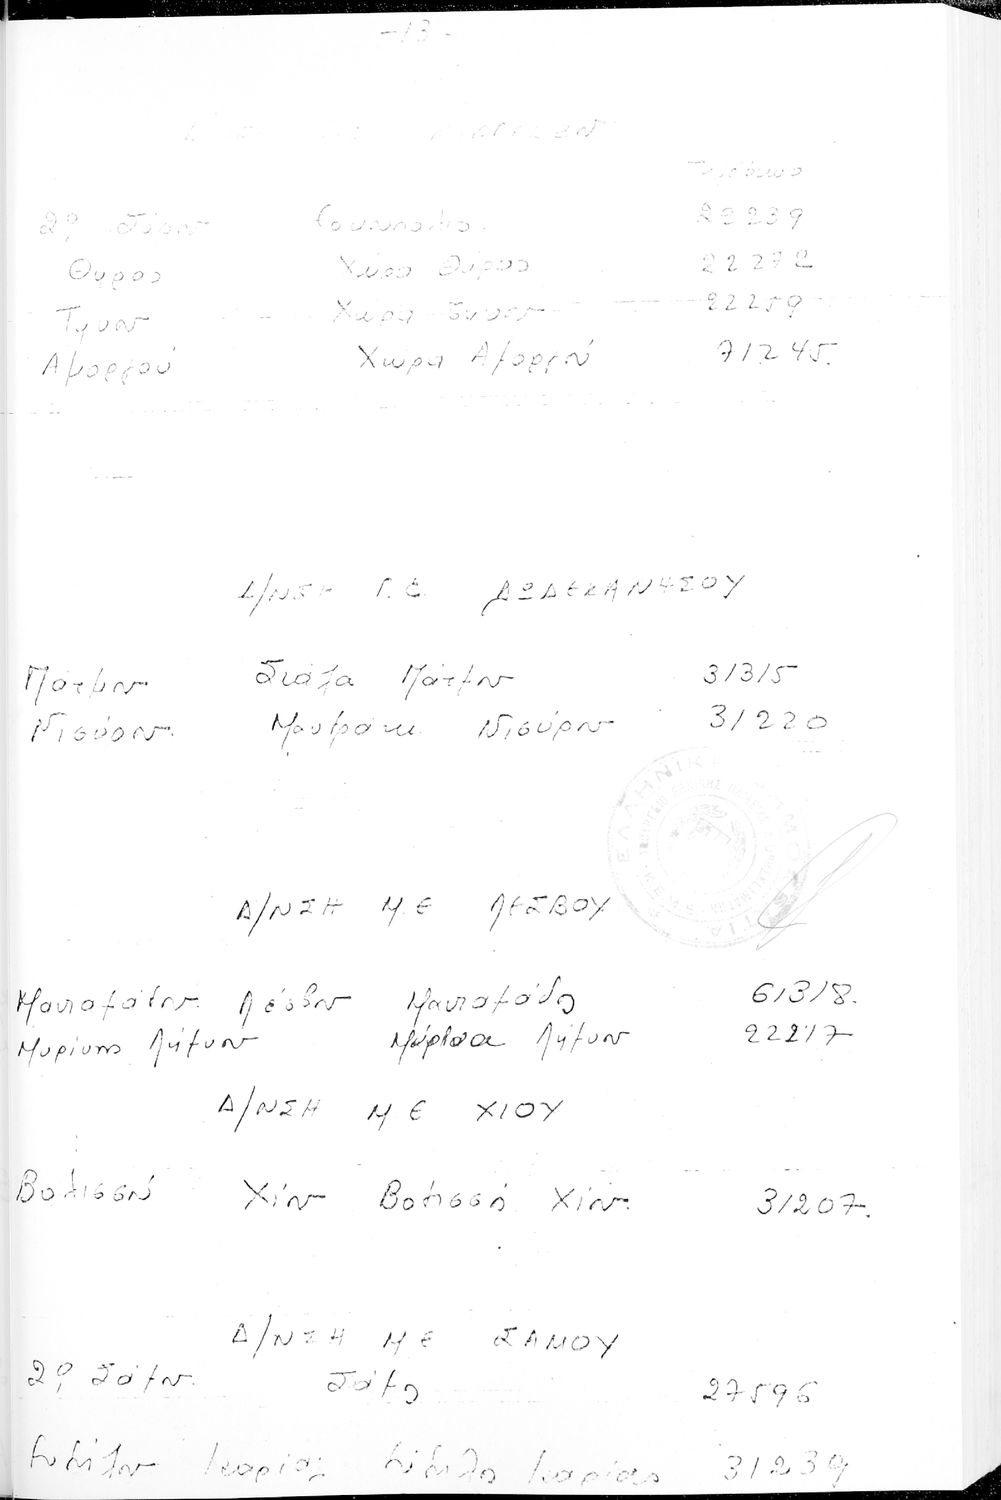 -13-
Τηλέφωνο
2ο Σύρου Ερμούπολις 22239
Θήρας Χώρα Θήρας 22272
Τήνου Χώρα Τήνου 22259
Αμοργού Χώρα Αμοργού 71245.
Δ/ΝΣΗ Γ.Ε. ΔΩΔΕΚΑΝΗΣΟΥ
Πάτμου Σκάλα Πάτμου 31315
Νισύρου Μανδράκι Νισύρου 31220
ΕΛΛΗΝΙΚΗ ΔΗΜΟΚΡΑΤΙΑ
Δ/ΝΣΗ Μ Ε ΛΕΣΒΟΥ
Μανταμάδου Λέσβου Μανταμάδος 61318.
Μυρίνης Λήμνου Μύρινα Λήμνου 22217
Δ/ΝΣΗ Μ Ε ΧΙΟΥ
Βολισσού Χίου Βολισσό Χίου 31207.
Δ/ΝΣΗ Μ Ε ΣΑΜΟΥ
2ο Σάμου Σάμος 27596
Ευδήλου Ικαρίας Εύδηλος Ικαρίας 31239